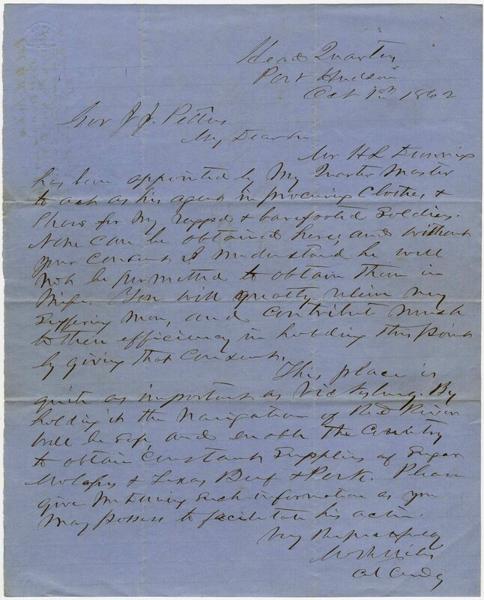 Head Quarters
Port Hudson
Oct 1st 1862
Gov J. J. Pettus
My Dear Sir
Mr H L
has been appointed by My Quarter Master
to act as his agent in procuring Clothes &
Shoes for My ragged & barefooted Soldiers.
None can be obtained here, and without
your Consent I understand he will
not be permitted to obtain them in
Missi. You will greatly relieve my
Suffering Men, and Contribute much
to their efficiency in holding this point
by giving that Consent.
This place is
quite as important as Vicksburg. By
holding it the Navigation of Red River
will be safe and enable the Country
to obtain Constant Supplies of Sugar
Molasses & Texas Beef & Pork. Please
give Mr such information as you
May possess to facilitate his action
Very Respectfully
W R Miles
Col Cmdg